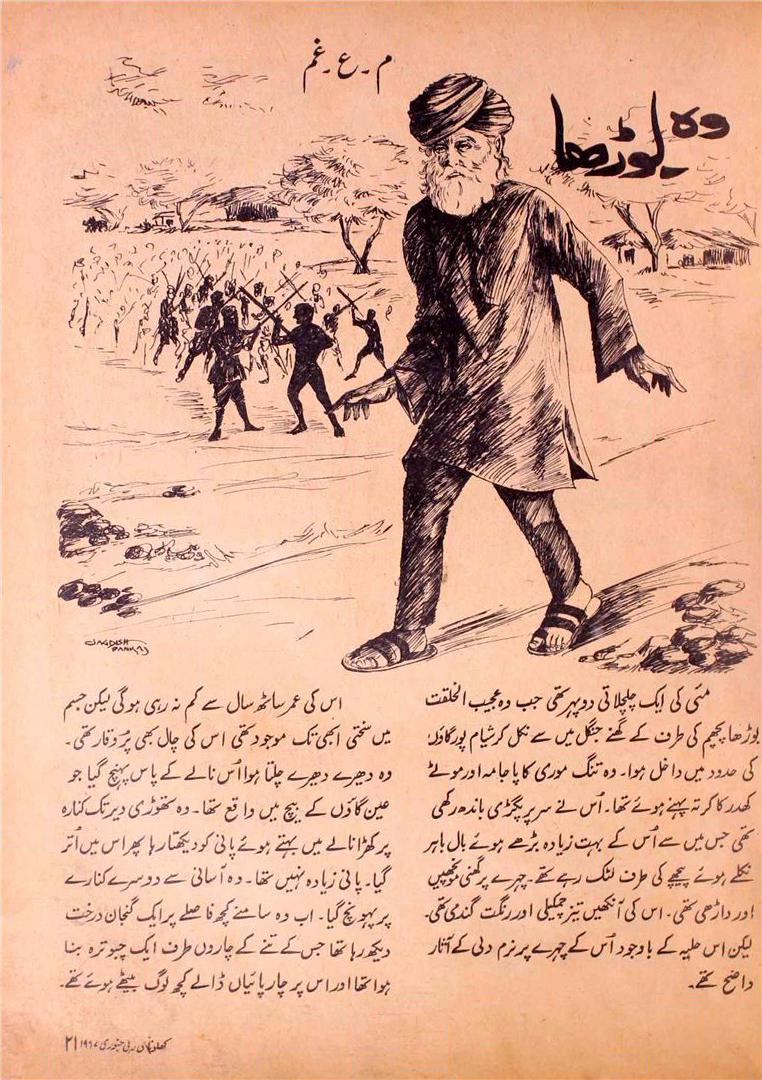 م ۔ ع ۔ غم
وہ بوڑھا
JAGDISH
PANKAJ
مئی کی ایک چلچلاتی دوپہر تھی جب وہ عجیب الخلقت
بوڑھا پچھم کی طرف کے گھنے جنگل میں سے نکل کر شیام پور گاؤں
کی حدود میں داخل ہوا۔ وہ تنگ موری کا پاجامہ اور موٹے
کھدر کا کرتہ پہنے ہوئے تھا۔ اُس نے سر پر پگڑی باندھ رکھی
تھی جس میں سے اُس کے بہت زیادہ بڑھے ہوئے بال باہر
نکلے ہوئے پیچھے کی طرف لٹک رہے تھے۔ چہرے پر گھنی مونچھیں
اور داڑھی تھی۔ اس کی آنکھیں تیز چمکیلی اور رنگت گندمی تھی۔
لیکن اس حلیہ کے باوجود اُس کے چہرے پر نرم دلی کے آثار
واضح تھے۔
اس کی عمر ساٹھ سال سے کم نہ رہی ہوگی لیکن جسم
میں سختی ابھی تک موجود تھی اس کی چال بھی پُروقار تھی۔
وہ دھیرے دھیرے چلتا ہوا اُس نالے کے پاس پہنچ گیا جو
عین گاؤں کے بیچ میں واقع تھا۔ وہ تھوڑی دیر تک کنارہ
پر کھڑا نالے میں بہتے ہوئے پانی کو دیکھتا رہا پھر اس میں اُتر
گیا۔ پانی زیادہ نہیں تھا۔ وہ آسانی سے دوسرے کنارے
پر پہونچ گیا۔ اب وہ سامنے کچھ فاصلے پر ایک گنجان درخت
دیکھ رہا تھا جس کے تنے کے چاروں طرف ایک چبوترہ بنا
ہوا تھا اور اس پر چارپائیاں ڈالے کچھ لوگ بیٹھے ہوئے تھے۔
کھلونا نئی دہلی جنوری ۱۹۶۷ ۲۱